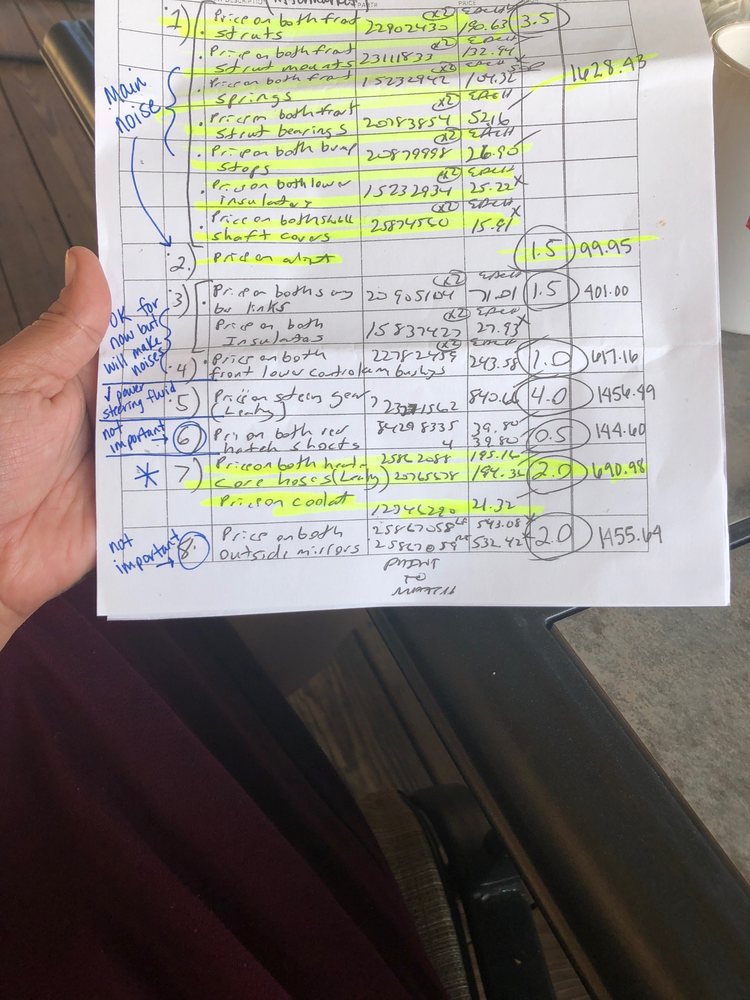 DESCRIPTION PART# PRICE
1) Price on both front x2 EACH 3.5
struts 22902430 190.63
Price on both front x2 EACH
strut mounts 23111833 132.94
Price on both front x2 EACH
springs 15232942 104.32 1628.43
Main noise
Price on both front x2 EACH
strut bearings 20783854 52.16
Price on both bump x2 EACH
stops 20879998 26.90
Price on both lower x2 EACH
insulators 15232934 25.22
Price on both x2 EACH
shaft covers 25874560 15.91
2.) 1.5 99.95
3) Price on both sway x2 EACH 1.5 401.00
bar links 71.01
Price on both x2 EACH
Insulators 15837427 27.93
OK for
now but
will make
noises
4) Price on both x2 EACH 1.0 617.16
front lower control arm 22782459 243.58
✓ power
steering fluid
5) Price on steering gear 4.0 1456.49
(Leaky)
not
important →
6) 84298335 39.80 0.5 144.60
hatch shocks 4 39.80
* 7) Price on both heater 2586 2088 195.16 2.0 690.98
core hoses (Leaky) 20765678 194.32
Price on coolant 12346290 21.32
not
important →
8. Price on both 25867058 LH 543.08 2.0 1455.64
outside mirrors 25867059 RH 532.42
PAINT
TO
MATCH